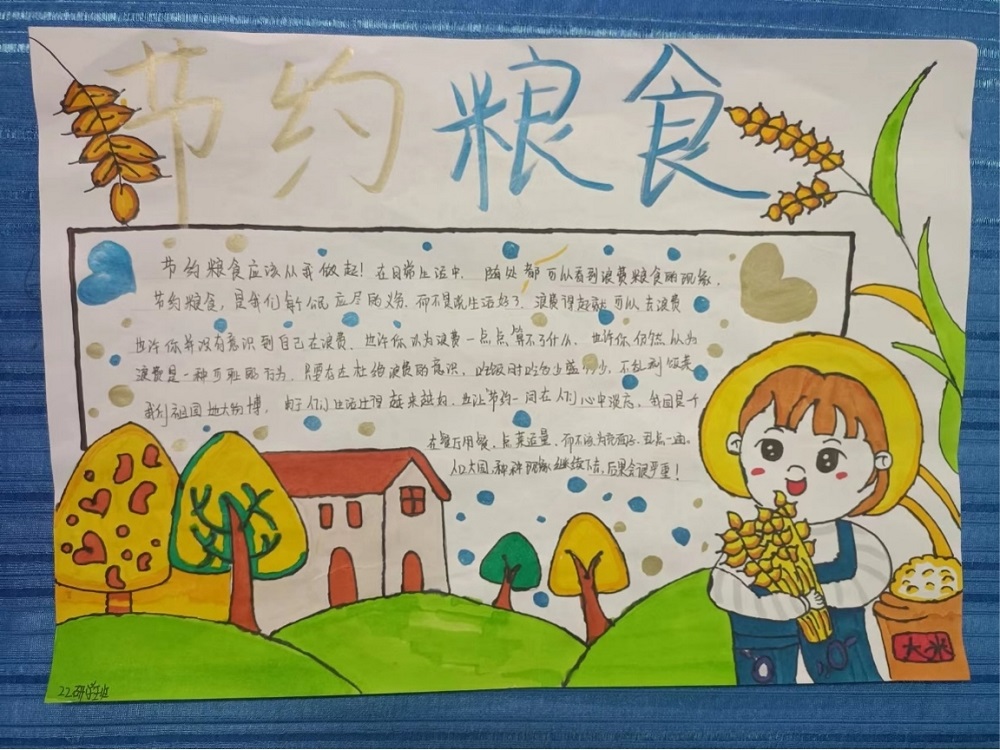 节约粮食
节约粮食应该从我做起！在日常生活中，随处都可以看到浪费粮食的现象，
节约粮食，是我们每个公民应尽的义务，而不是说生活好了，浪费得起就可以去浪费
也许你并没有意识到自己在浪费，也许你认为浪费一点点算不了什么，也许你仍然认为
浪费是一种可耻的行为，只要存在杜绝浪费的意识，吃饭时吃多少盛多少，不乱剩饭菜
我们祖国地大物博，的人们生活过得越来越好，节约一词在人们心中淡忘，我国是个
在餐厅用餐，点菜适量，而不该为面子，点一
人口大国，种种现象继续下去，后果会很严重！
大米
22研学班